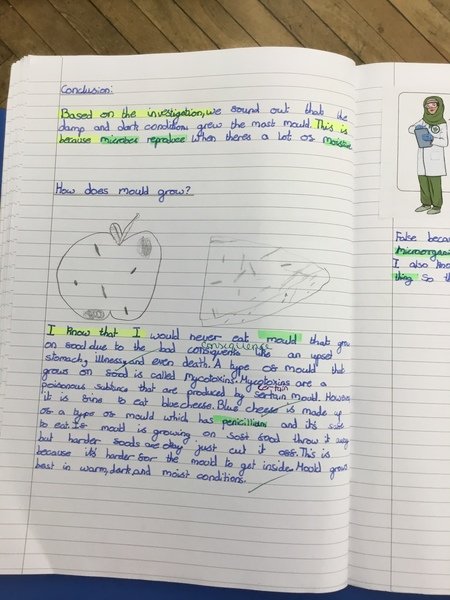 Conclusion:
Based on the investigation, we sound out that the
damp and dark conditions grew the most mould. This is
because microbes reproduce when theres a lot os moisture
How does mould grow?
I know that I would never eat mould that grow
consequence
on sood due to the bad consiquents like an upset
stomach, illness and even death. A type os mould that
grows on sood is called Mycotoxins. Mycotoxins are a
certain
poisonous subtince that are produced by sertain mould. However
it is sine to eat blue cheese. Blue cheese is made up
os a type os mould which has penicillium and it's sase
to eat. Is mould is growing on sost sood throw it away
but harder soods are okay just cut it oss. This is
because it's harder sor the mould to get inside. Mould grows
best in warm, dark, and moist conditions.
False becau
Microorgani
I also kno
thing So th